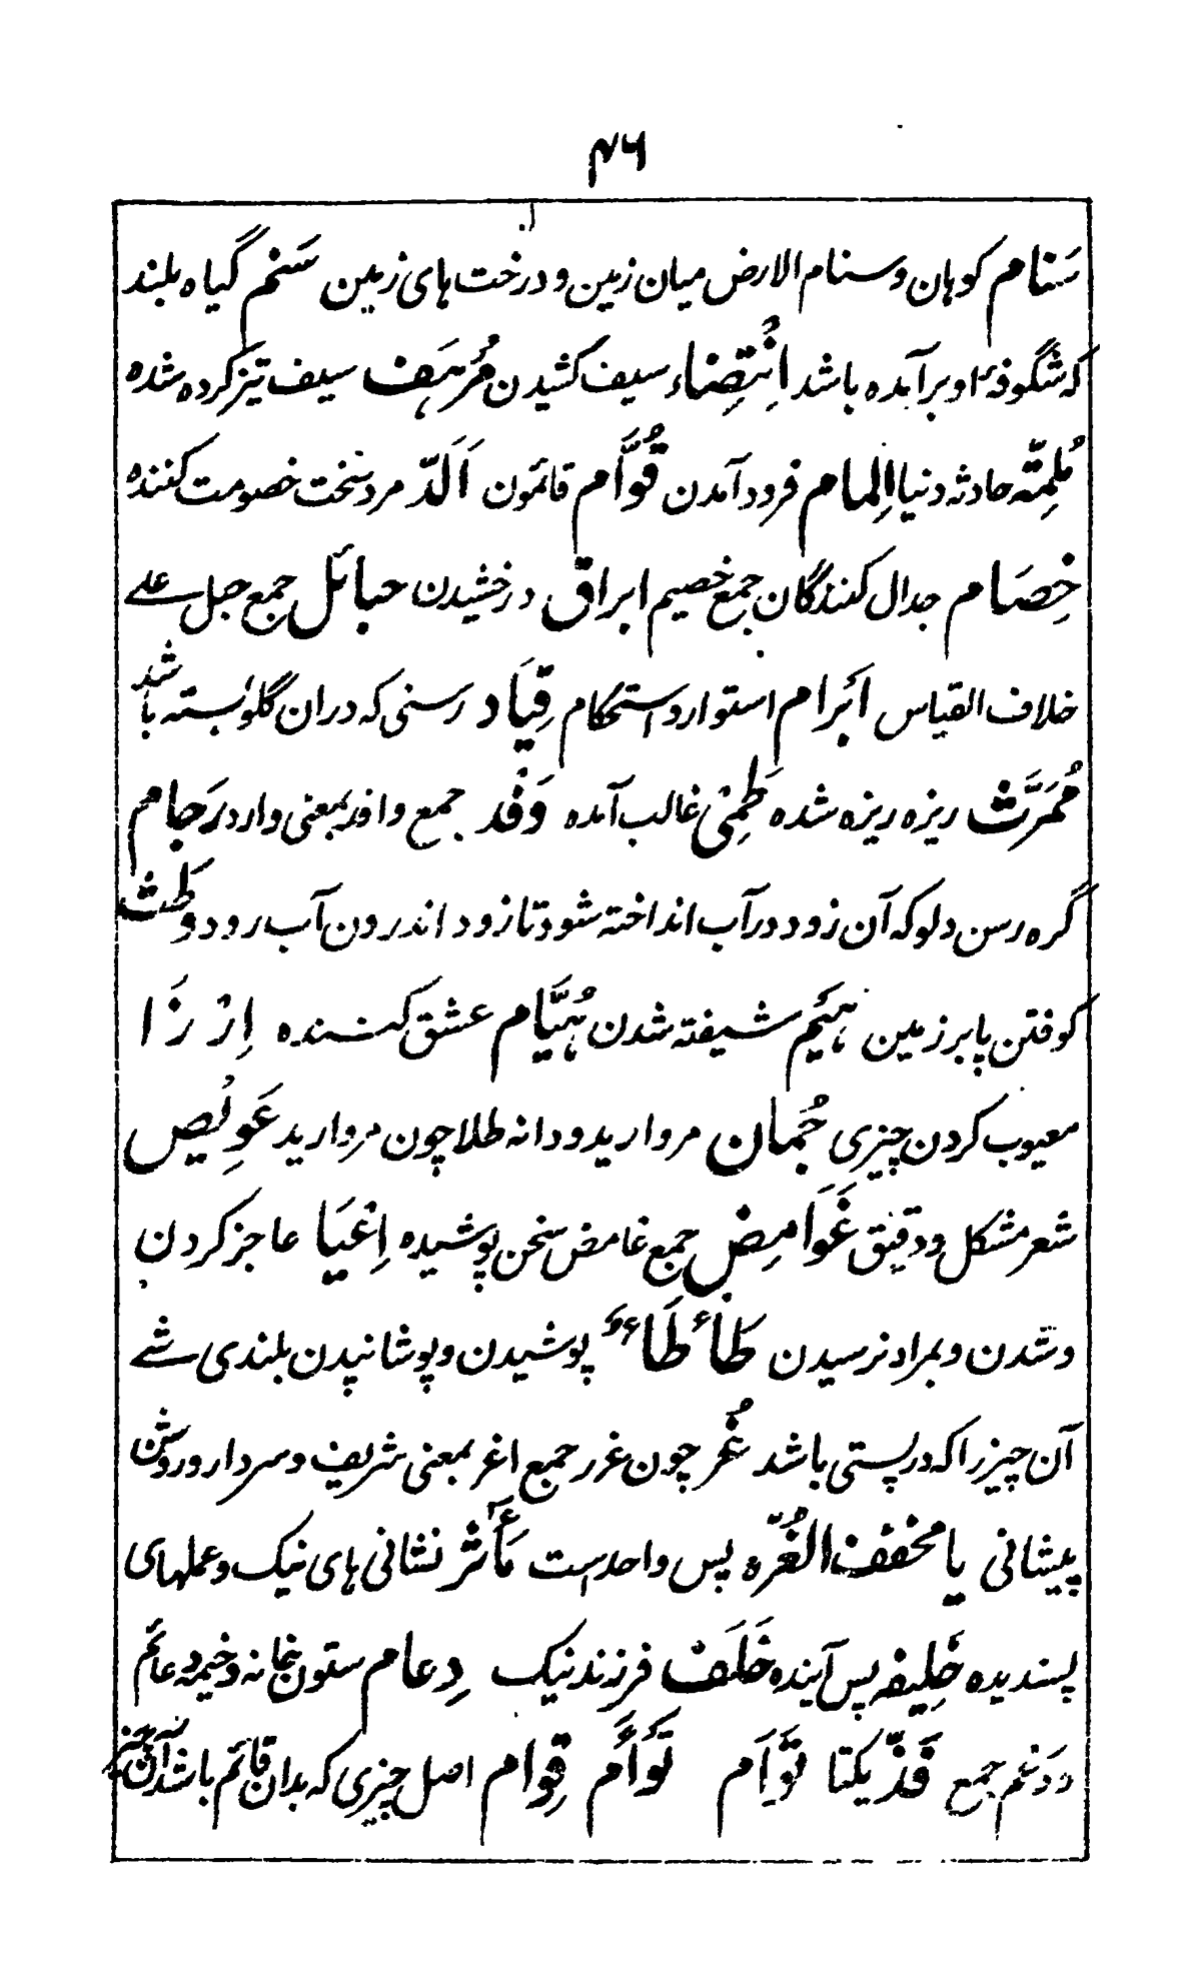 ۴۶
سَنام کوہان وسنام الارض میان زمین و درخت ہای زمین سَنم گیاہ بلند
کہ شگوفۂ او برآمدہ باشد اِنْتِضاء سیف کشیدن مُرْہَف سیف تیز کردہ شدہ
مُلِمّہ حادثہ دنیا اِلمام فرود آمدن قُوَّام قائمون اَلَدّ مرد سخت خصومت کنندہ
خِصَام جدال کنندگان جمع خصیم ابراق درخشیدن حبائل جمع حبل علے
خلاف القیاس اَبْرام استوار و استحکام قِیَاد رسنی کہ دران گلو بستہ باشد
مُمَرَّث ریزہ ریزہ شدہ طَمِیْ غالب آمدہ وَفْد جمع وافد بمعنی وارد رَجام
گرہ رسن دلو کہ آن زود در آب انداختہ شود تا زود اندرون آب رود وَطَث
کوفتن پا بر زمین ہَیَم شیفتہ شدن ہُیَّام عشق کنندہ اِزْرَا
معیوب کردن چیزی جُمان مروارید و دانہ طلا چون مروارید عَوِیْص
شعر مشکل و دقیق غَوَامِض جمع غامض سخن پوشیدہ اِعْیَا عاجز کردن
و شدن و بمراد نرسیدن طَأطَاء پوشیدن و پوشانیدن بلندی شے
آن چیز را کہ در پستی باشد غُر چون غرر جمع اغر بمعنی شریف و سردار و روشن
پیشانی یا مخفف الغُرّہ پس واحد است مَأثر نشانی ہای نیک و عملہای
پسندیدہ خَلِیفہ پس آیندہ خَلَف فرزند نیک دِعام ستون خانہ و خیمہ دعائم
و دَعم جمع فَذّ یکتا تَوأم تَوَأم قِوام اصل چیزی کہ بدان قائم باشد آن چیز